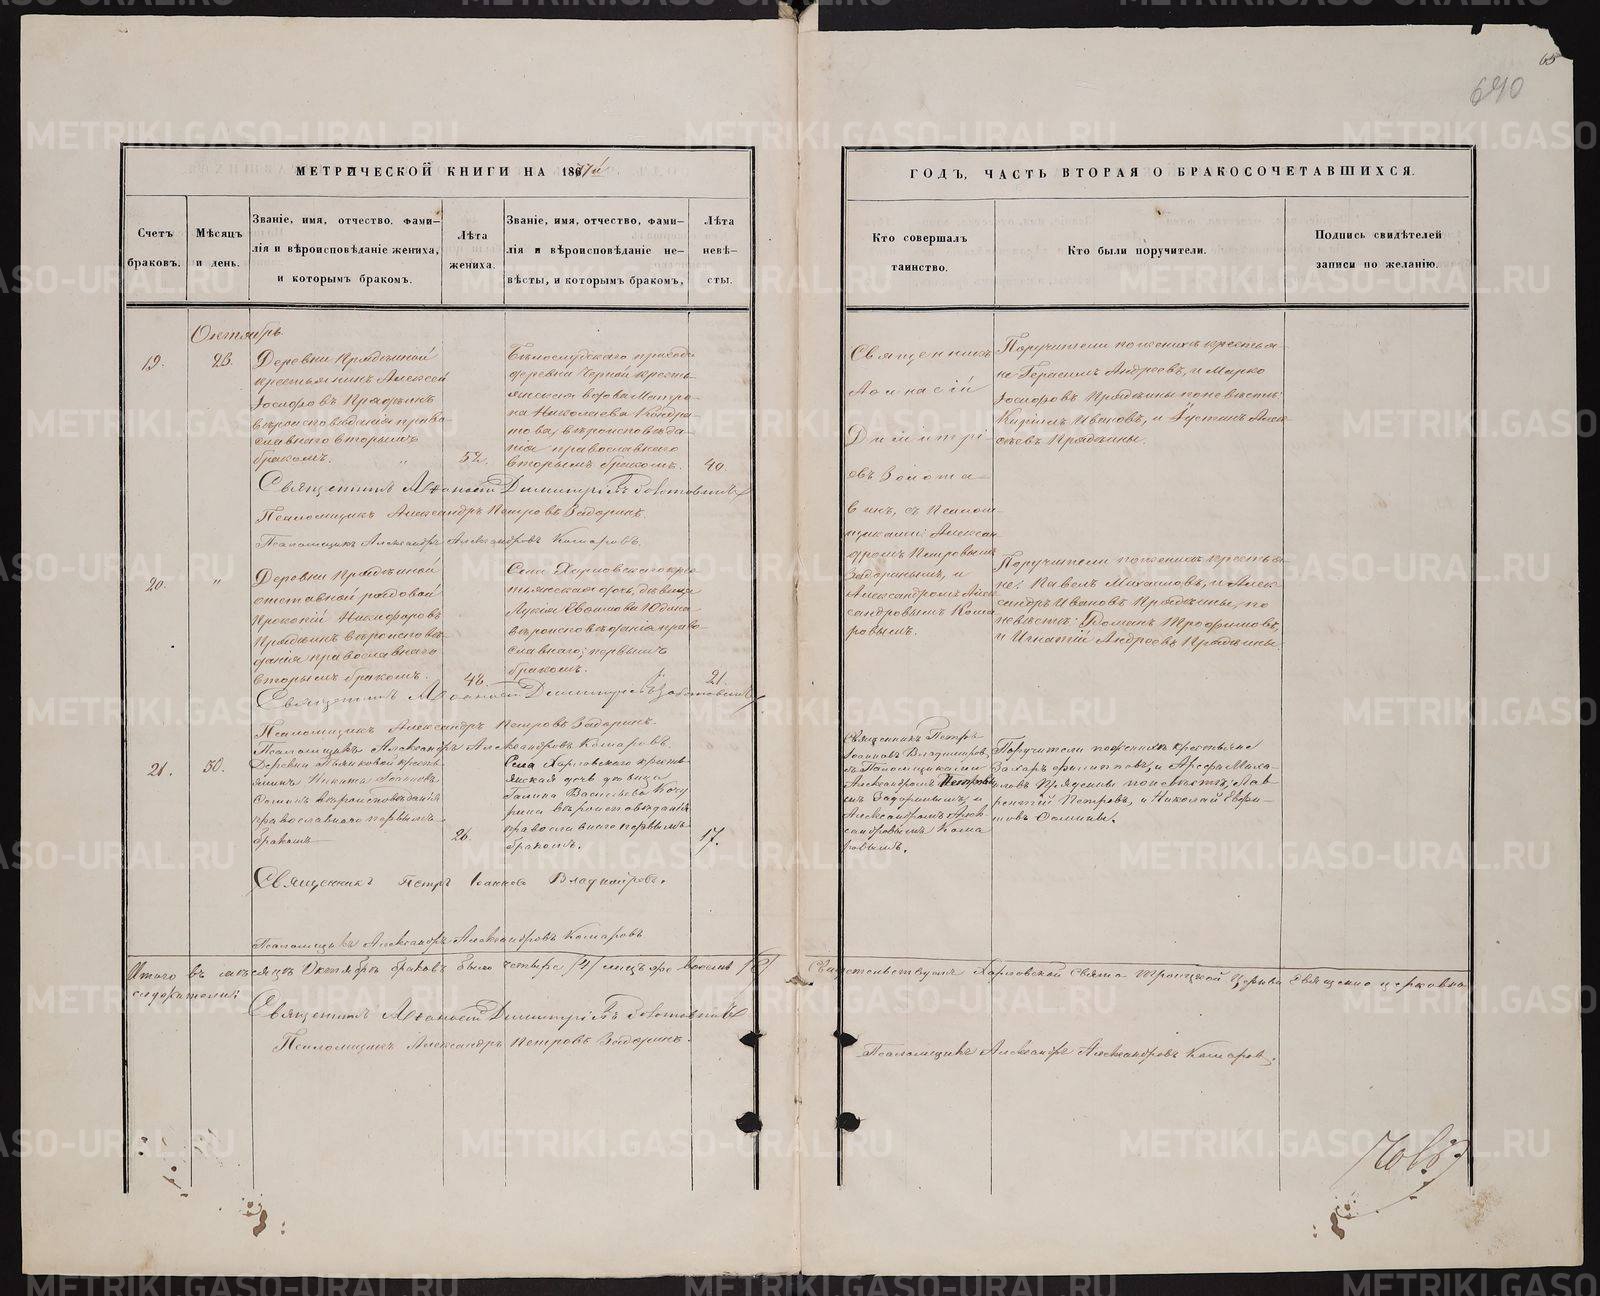 65
640
МЕТРИЧЕСКОЙ КНИГИ НА 1867
Счетъ браковъ.
Мѣсяцъ и день.
Званіе, имя, отчество, фами-
лія и вѣроисповѣданіе жениха,
и которымъ бракомъ.
Лѣта
жениха.
Званіе, имя, отчество, фами-
лія и вѣроисповѣданіе не-
вѣсты, и которымъ бракомъ,
Лѣта
невѣ-
сты.
Октябрь
19.
23.
Деревни Прядѣиной
крестьянинъ Алексей
Іосифовъ Прядѣинъ
вѣроисповѣданія право
славнаго вторымъ
бракомъ.
52.
Бѣлослудскаго прихода
деревни Черной кресть
янская вдова Матре-
на Николаева Кондра-
това, вѣроисповѣда-
нія православнаго
вторымъ бракомъ.
40.
Священникъ Афанасій Димитріевъ Золотавинъ
Псаломщикъ Александръ Петровъ Задоринъ.
Псаломщикъ Александръ Александровъ Комаровъ.
20.
"
Деревни Прядѣиной
отставной рядовой
Прокопій Никифоровъ
Прядѣинъ вѣроисповѣ-
данія православнаго
вторымъ бракомъ.
48.
Села Харловскаго кре-
стьянская дочь, дѣвица
Лукія Евфимова Юдина
вѣроисповѣданія право-
славнаго; первымъ
бракомъ.
21.
Священникъ Афанасій Димитріевъ Золотавинъ
Псаломщикъ Александръ Петровъ Задоринъ.
Псаломщикъ Александръ Александровъ Комаровъ.
21.
30.
Деревни Пьянковой кресть-
янинъ Никита
Соминъ вѣроисповѣданія
православнаго первымъ
бракомъ
26.
Села Харловскаго кресть-
янская дочь дѣвица
Галина Васильева Кочу
рина вѣроисповѣданія
православнаго первымъ
бракомъ.
17.
Священникъ Петръ Іоанновъ Владиміровъ.
Псаломщикъ Александръ Александровъ Комаровъ
Итого въ мѣсяцѣ Октябрѣ браковъ было четыре /4/ лицъ же восемь /8/
Священникъ Афанасій Димитріевъ Золотавинъ
Псаломщикъ Александръ Петровъ Задоринъ.
ГОДЪ, ЧАСТЬ ВТОРАЯ О БРАКОСОЧЕТАВШИХСЯ.
Кто совершалъ
таинство.
Кто были поручители.
Подпись свидѣтелей
записи по желанію.
Священникъ
Афанасій
Димитрі
евъ Золота
винъ, съ Псалом-
щиками: Алексан
дромъ Петровымъ
Задоринымъ, и
Александромъ Алек
сандровымъ Кома
ровымъ.
Поручители по женихѣ крестья-
не Герасимъ Андреевъ, и Марко
Іосифовъ Прядѣины по невѣстѣ:
Кирилъ Ивановъ, и Густинъ Алек-
сѣевъ Прядѣины.
Поручители по женихѣ крестья
не: Павелъ Михайловъ, и Алек-
сандръ Ивановъ Прядѣины, по
невѣстѣ: Романъ Трофимовъ,
и Игнатій Андреевъ Прядѣины.
Священникъ Петръ
Іоанновъ Владиміровъ,
съ Псаломщиками
Александромъ Петровы
мъ Задоринымъ, и
Александромъ Алек
сандровымъ Кома
ровымъ.
Поручители по женихѣ крестьяне
Захаръ Филиповъ, и Арсеф Миха-
иловъ Прядеины по невѣстѣ: Лав
рентій Петровъ, и Николай Евфи-
мовъ Сомины.
Свидетельствуемъ Харловской Свято Троицкой Церкви Священно церковно
служители:
Псаломщикъ Александръ Александровъ Комаровъ.
METRIKI.GASO-URAL.RU